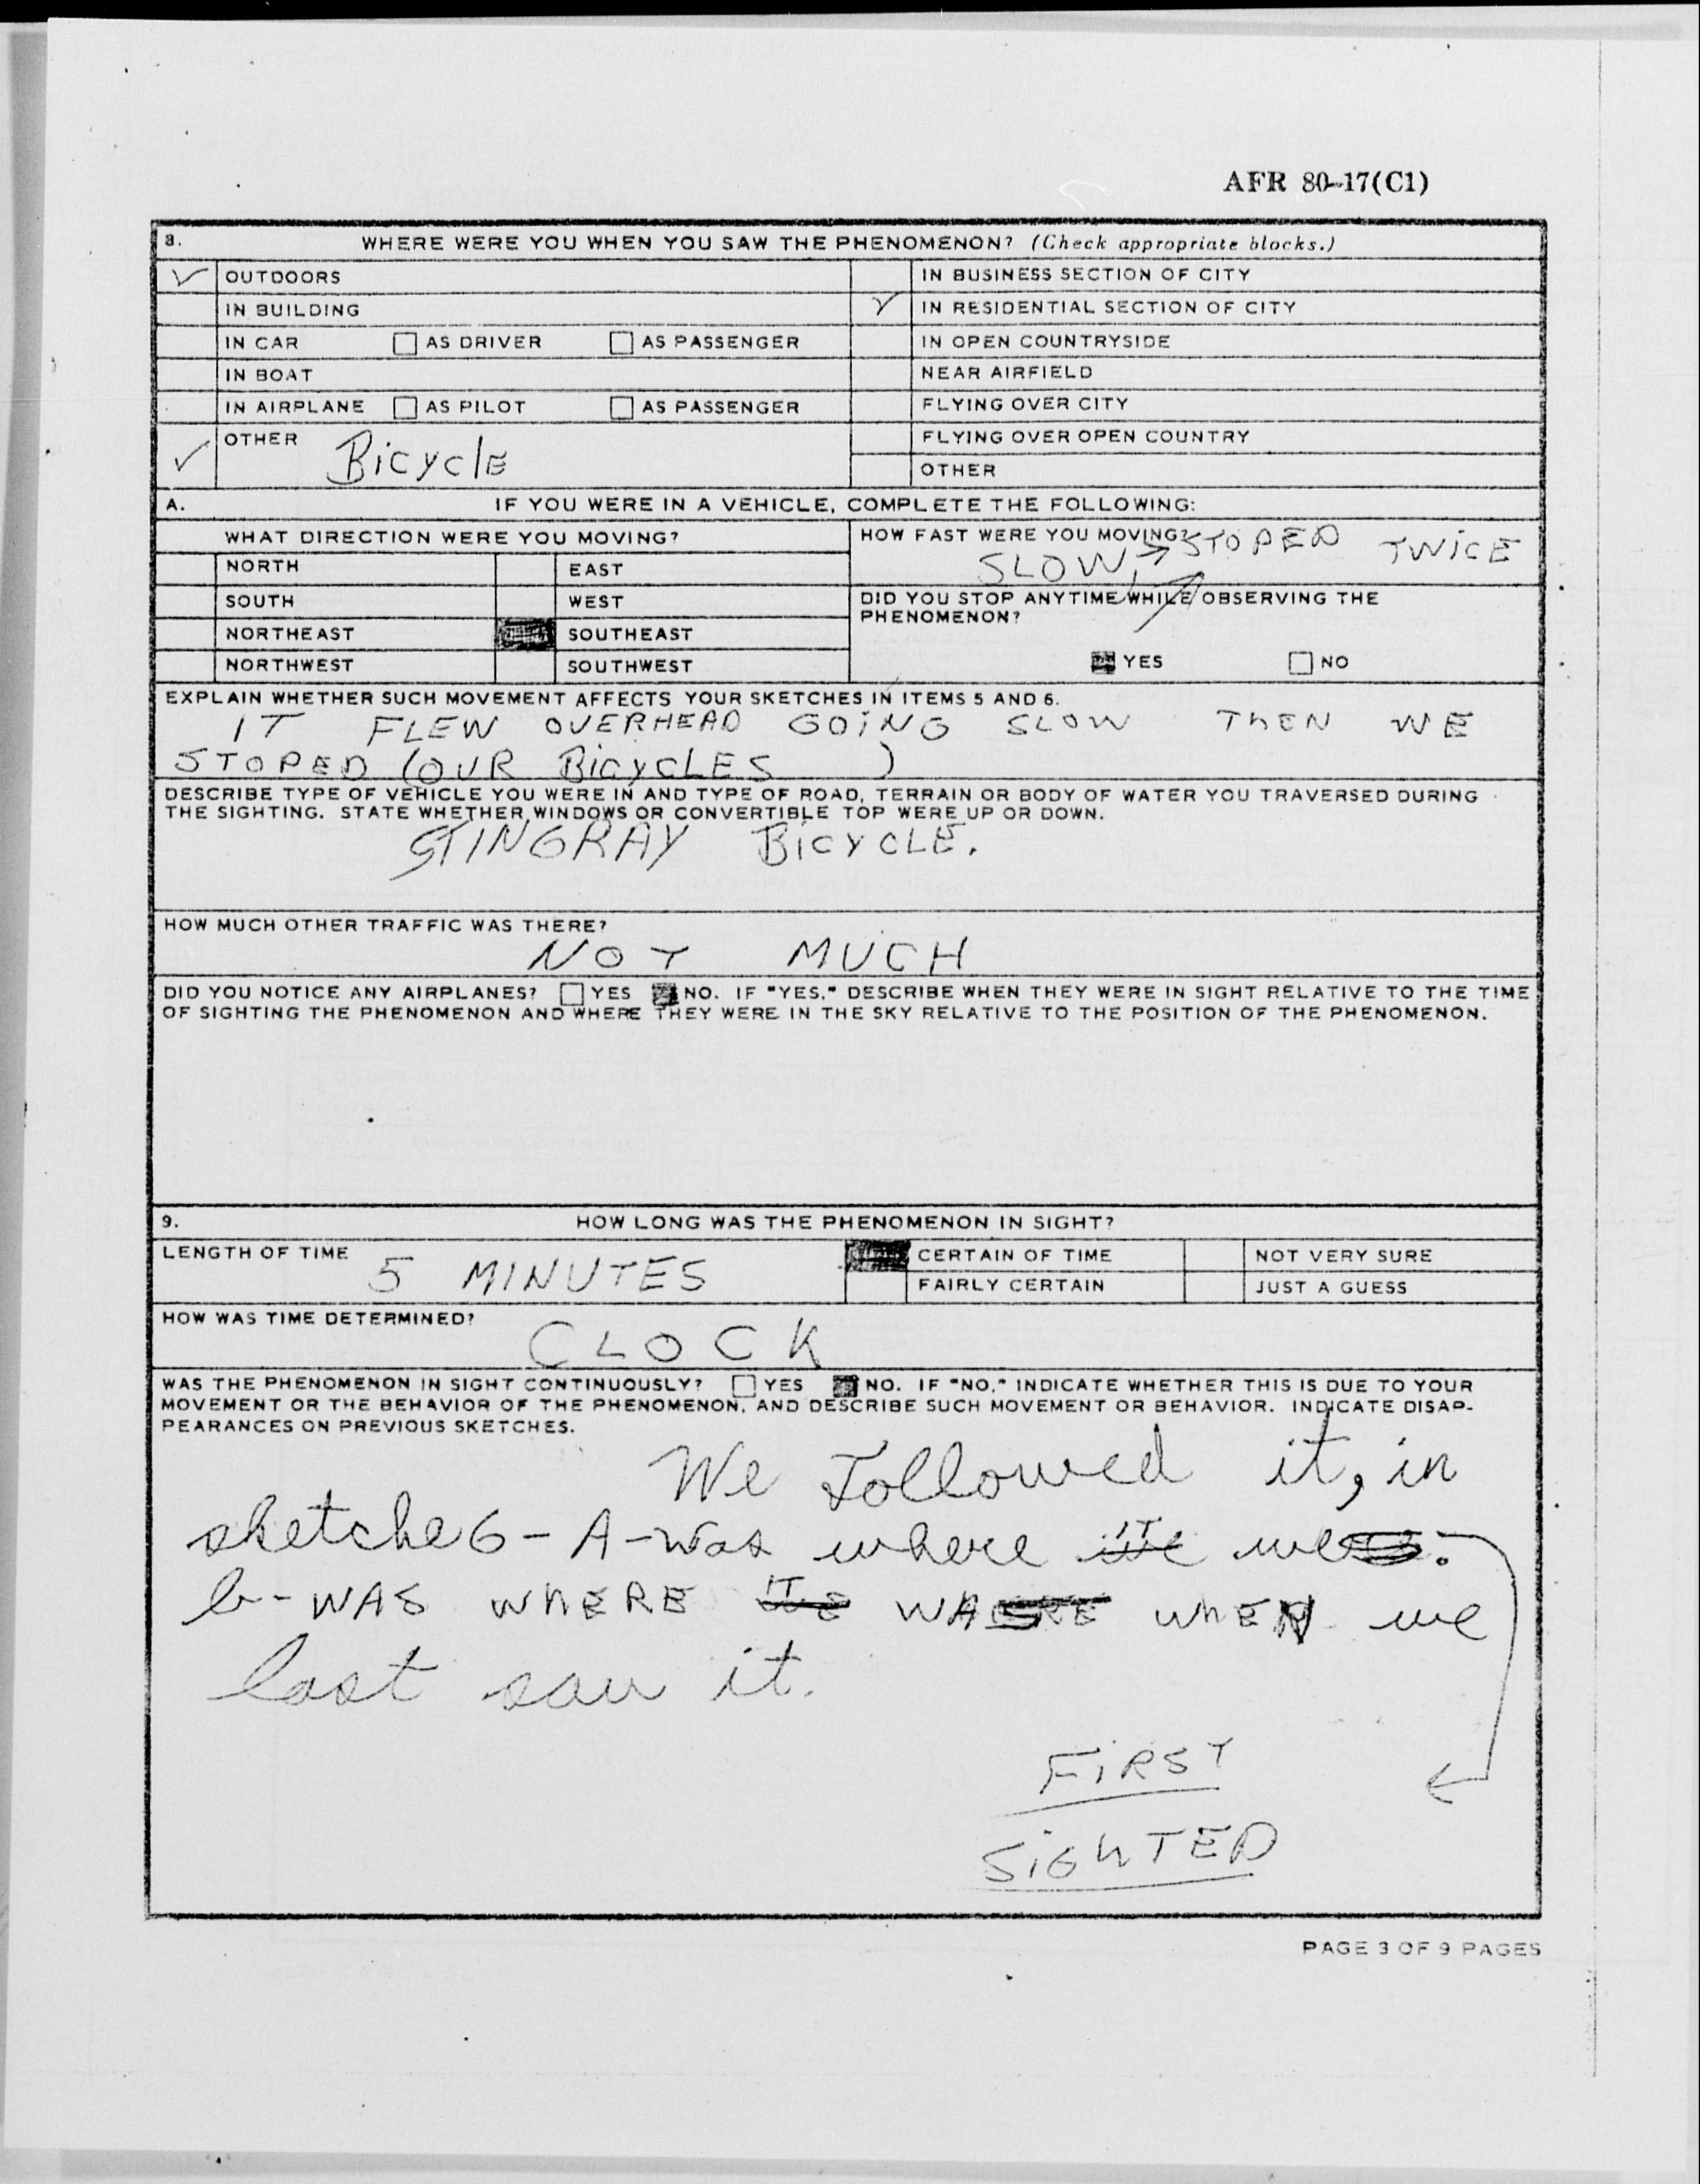 AFR 80-17(C1)
8. WHERE WERE YOU WHEN YOU SAW THE PHENOMENON? (Check appropriate blocks.)
✓ OUTDOORS
IN BUSINESS SECTION OF CITY
IN BUILDING
✓ IN RESIDENTIAL SECTION OF CITY
IN CAR ☐ AS DRIVER ☐ AS PASSENGER
IN OPEN COUNTRYSIDE
IN BOAT
NEAR AIRFIELD
IN AIRPLANE ☐ AS PILOT ☐ AS PASSENGER
FLYING OVER CITY
✓ OTHER BicyclE
FLYING OVER OPEN COUNTRY
OTHER
A. IF YOU WERE IN A VEHICLE, COMPLETE THE FOLLOWING:
WHAT DIRECTION WERE YOU MOVING?
HOW FAST WERE YOU MOVING?
SLOW, → STOPED TWiCE
NORTH EAST
SOUTH WEST
DID YOU STOP ANYTIME WHILE OBSERVING THE
PHENOMENON?
NORTHEAST ■ SOUTHEAST
NORTHWEST SOUTHWEST
■ YES ☐ NO
EXPLAIN WHETHER SUCH MOVEMENT AFFECTS YOUR SKETCHES IN ITEMS 5 AND 6.
IT FLEW OVERHEAD GOiNG SLOW ThEN WE
STOPED (OUR BicyCLES )
DESCRIBE TYPE OF VEHICLE YOU WERE IN AND TYPE OF ROAD, TERRAIN OR BODY OF WATER YOU TRAVERSED DURING
THE SIGHTING. STATE WHETHER WINDOWS OR CONVERTIBLE TOP WERE UP OR DOWN.
STINGRAY BicyCLE.
HOW MUCH OTHER TRAFFIC WAS THERE?
NOT MUCH
DID YOU NOTICE ANY AIRPLANES? ☐ YES ■ NO. IF "YES," DESCRIBE WHEN THEY WERE IN SIGHT RELATIVE TO THE TIME
OF SIGHTING THE PHENOMENON AND WHERE THEY WERE IN THE SKY RELATIVE TO THE POSITION OF THE PHENOMENON.
9. HOW LONG WAS THE PHENOMENON IN SIGHT?
LENGTH OF TIME 5 MINUTES
■ CERTAIN OF TIME NOT VERY SURE
FAIRLY CERTAIN JUST A GUESS
HOW WAS TIME DETERMINED?
CLOCK
WAS THE PHENOMENON IN SIGHT CONTINUOUSLY? ☐ YES ■ NO. IF "NO," INDICATE WHETHER THIS IS DUE TO YOUR
MOVEMENT OR THE BEHAVIOR OF THE PHENOMENON, AND DESCRIBE SUCH MOVEMENT OR BEHAVIOR. INDICATE DISAP-
PEARANCES ON PREVIOUS SKETCHES.
We followed it, in
sketche 6 - A - was where IT we
b - WAS WhERE IT WAS WhEN we
last saw it.
FiRST
SiGhTED
PAGE 3 OF 9 PAGES